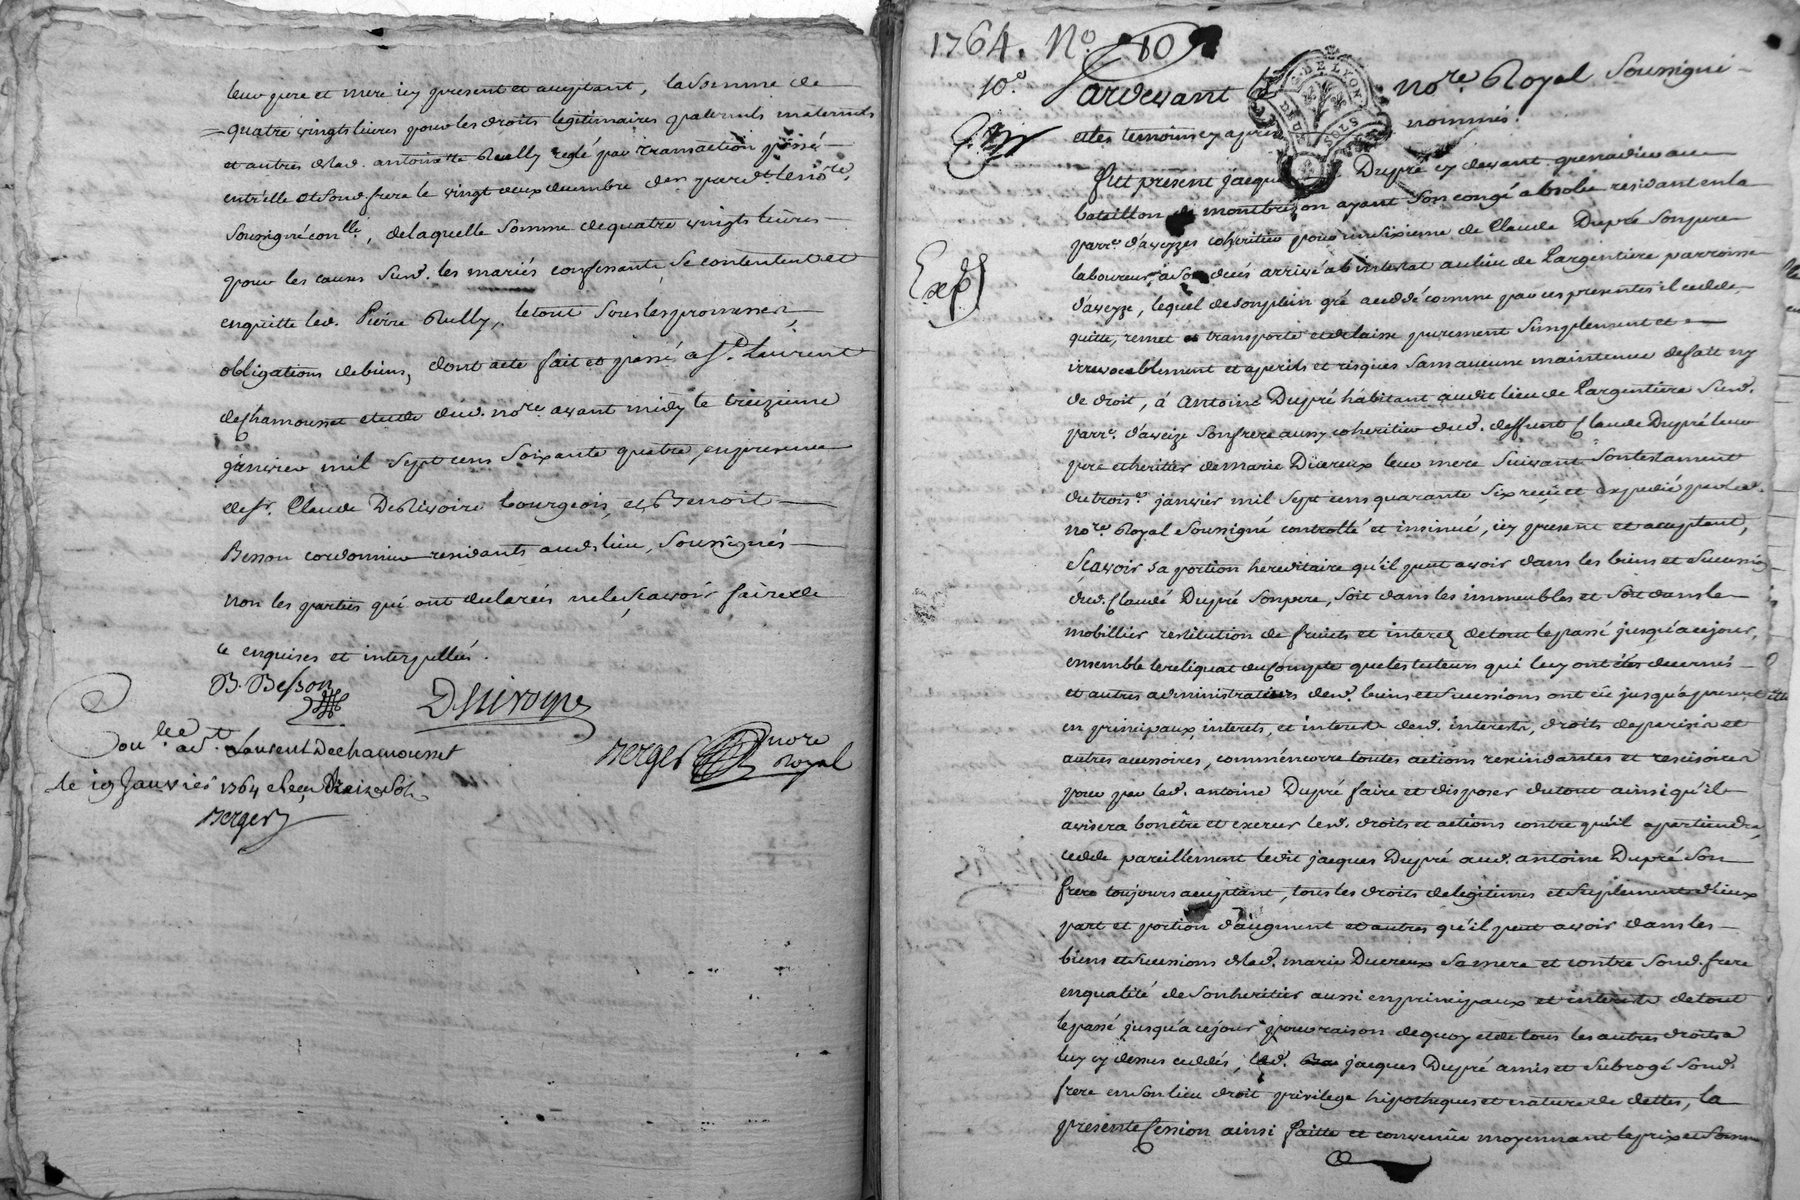 leur pere et mere icy present et aceptant, la somme de
quatre vingts livres pour les droits legitimaires paternels maternels
et autres de lad. antoinette Rully reglé par transaction passée
entr'elle et sond. frere le vingt deux decembre der. pard.t le no.re
soussigné con.llé, de laquelle somme de quatre vingts livres
pour les causes susd. les mariés confessants se contentent et
enquitte led. Pierre Rully, le tout sous les promesses,
obligations de biens, dont acte fait et passé a S.t Laurent
de Chamousset etude dud. no.re avant midy le treizieme
janvier mil sept cens soixante quatre, en presence
de s.r Claude DeRivoire bourgeois, et Benoit
Besson cordonnier residants aud. lieu, soussignés
non les parties qui ont declarées ne le sçavoir faire de
ce enquises et interpellées.
B. Besson
Derivoire
Berger no.re Royal
Con.llé a S.t Laurent Dechamousset
le 19 Janvier 1764 Reçu treize sols
Berger
1764. N.o 10
10.e
Pardevant le no.re Royal soussigné
et les temoins cy apres nommés.
GN. DE LYON
DEUX SOLS
Fut présent jacques Dupré cy devant grenadier au
bataillon de montbrison ayant son congé absolu residant en la
parr.e d'aveyzes coheritier pour un sixieme de Claude Dupré son pere
Exp.é
laboureur, a son decés arrivé ab intestat au lieu de Largentiere parroisse
d'aveyze, lequel de son plein gré a cedé comme par ces presentes il cedde,
quitte, remet et transporte et delaisse purement simplement et
irrevocablement et a perils et risques sans aucune maintenue de fait ny
de droit, à Antoine Dupré habitant audit lieu de Largentiere susd.
parr.e d'aveize son frere aussy coheritier dud. deffunt Claude Dupré leur
pere et heritier de marie Ducreux leur mere suivant son testament
du trois.e janvier mil sept cens quarante six reçu et expedié par led.
no.re Royal soussigné controllé et insinué, icy present et acceptant,
Sçavoir sa portion hereditaire qu'il peut avoir dans les biens et succession
dud. Claude Dupré son pere, soit dans les immeubles et soit dans le
mobillier restitution de fruits et interets de tout le passé jusqu'a ce jour,
ensemble le reliquat du Compte que les tuteurs qui luy ont étés decernés
et autres administrateurs desd. biens et successions ont eü jusqu'a present
en principaux, interets, et interets desd. interets, droits de presizion et
autres accessoires, comm'encore toutes actions rescindantes et rescisoires
pour par led. antoine Dupré faire et disposer du tout ainsi qu'il
avisera bon être et exercer lesd. droits et actions contre qu'il apartiendra,
cedde pareillement ledit jacques Dupré aud. antoine Dupré son
frere toujours aceptant, tous les droits de legitimes et suplement d'iceux
part et portion d'augment et autres qu'il peut avoir dans les
biens et successions de lad. marie Ducreux sa mere et contre sond. frere
en qualité de son heritier aussi en principaux et interets de tout
le passé jusqu'a ce jour pour raison de quoy et de tous les autres droits a
luy cy dessus ceddés, led. jacques Dupré a mis et subrogé sond.
frere en son lieu droit privilege hipotheques et nature de dettes, la
presente Cession ainsi faitte et convenüe moyennant le prix et somme